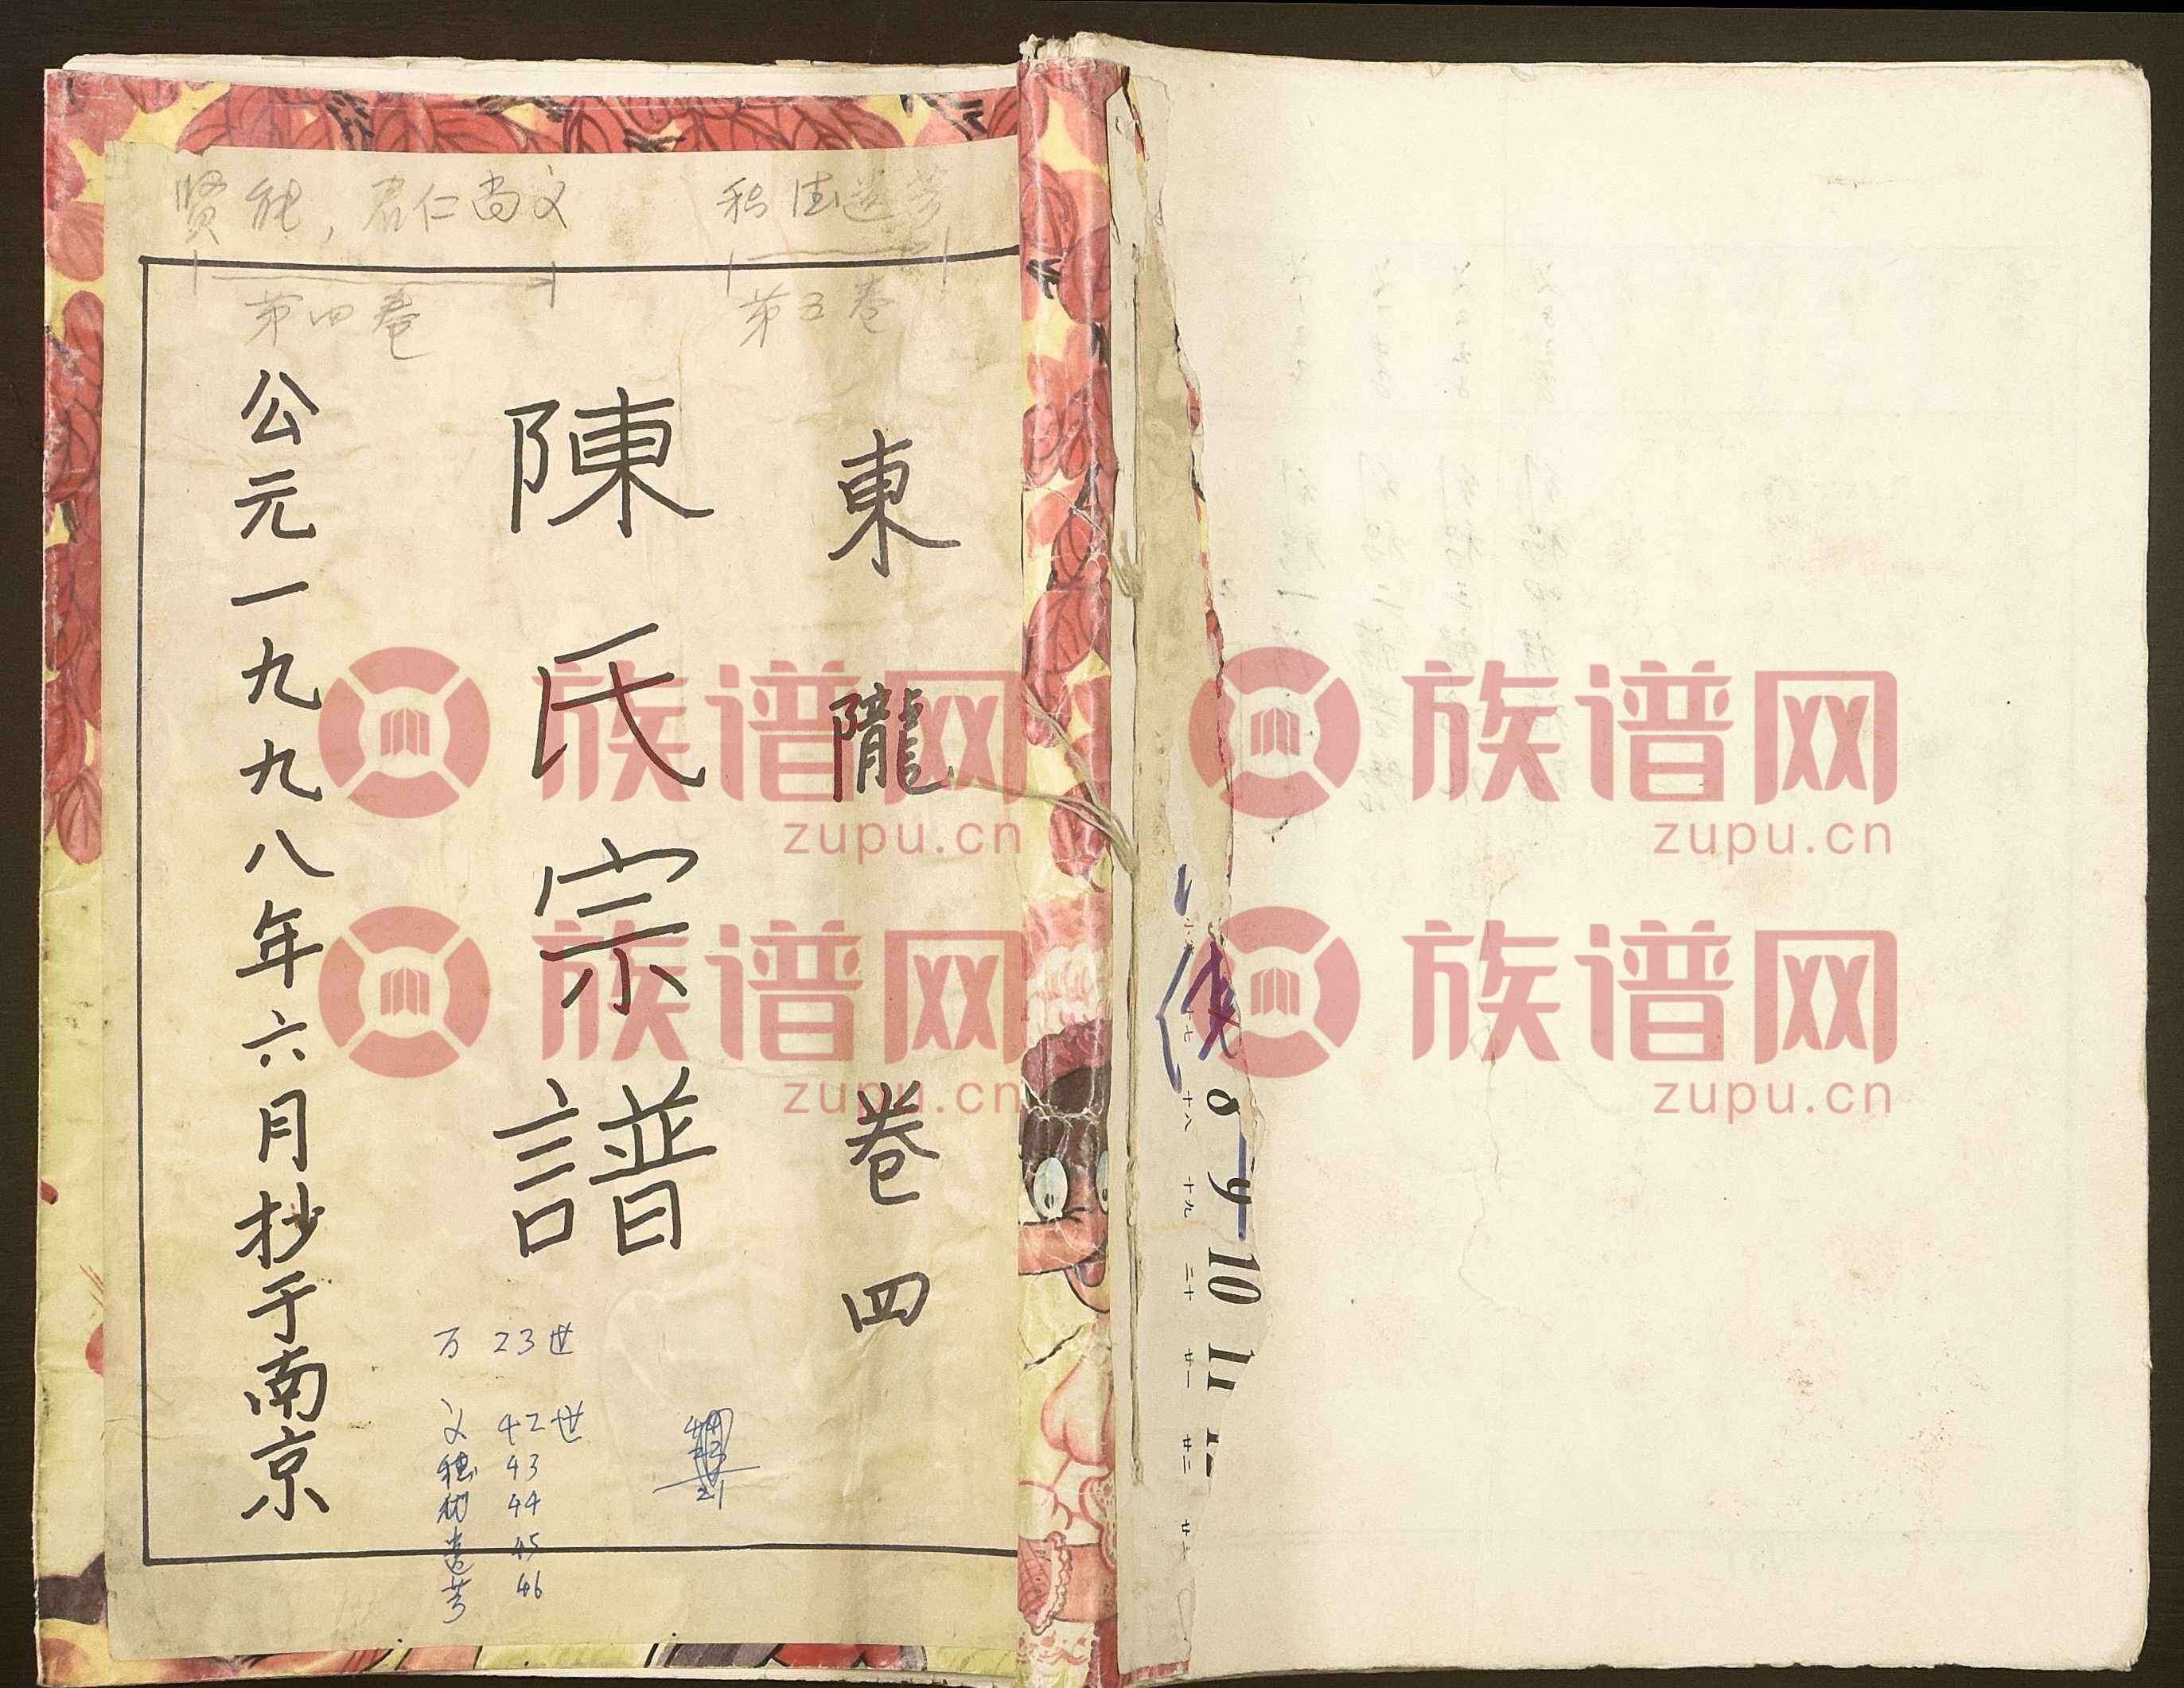 贤能,君仁尚文
积德遗芳
第四卷
第五卷
東隴 卷四
陳氏宗譜
公元一九九八年六月抄于南京
万 23世
文 42世
德 43
44
遗 45
芳 46
族谱网
zupu.cn
族谱网
zupu.cn
族谱网
zupu.cn
族谱网
zupu.cn
十七
十八
十九
二十
10
11